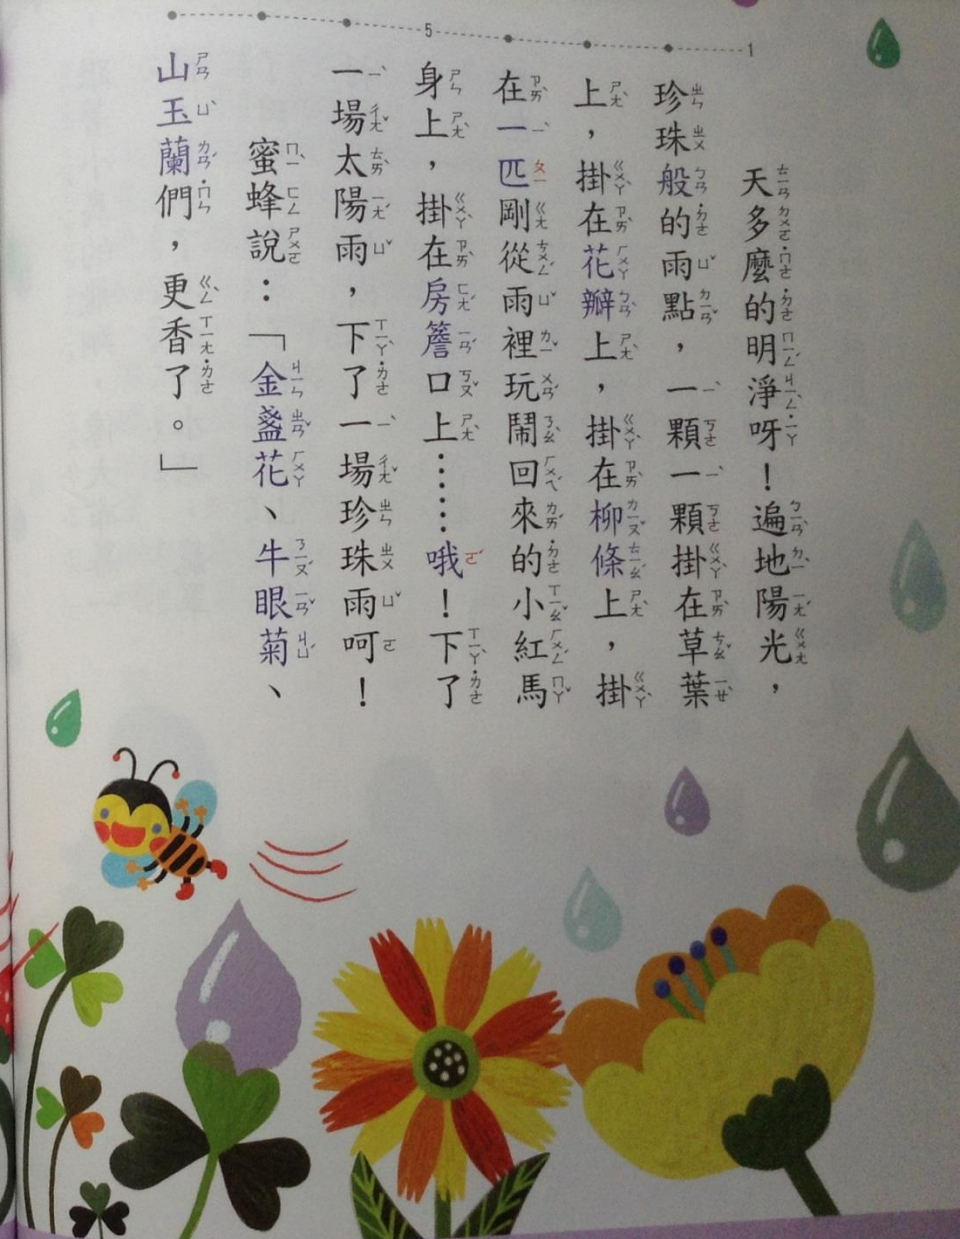 5
1
天多麼的明淨呀！遍地陽光，
珍珠般的雨點，一顆一顆掛在草葉
上，掛在花瓣上，掛在柳條上，掛
在一匹剛從雨裡玩鬧回來的小紅馬
身上，掛在房簷口上……哦！下了
一場太陽雨，下了一場珍珠雨呵！
蜜蜂說：「金盞花、牛眼菊、
山玉蘭們，更香了。」